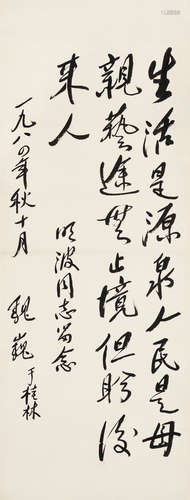 生活是源泉人民是母
親藝途無止境但盼後
来人
明波同志留念
一九八四年秋十月
魏巍于桂林